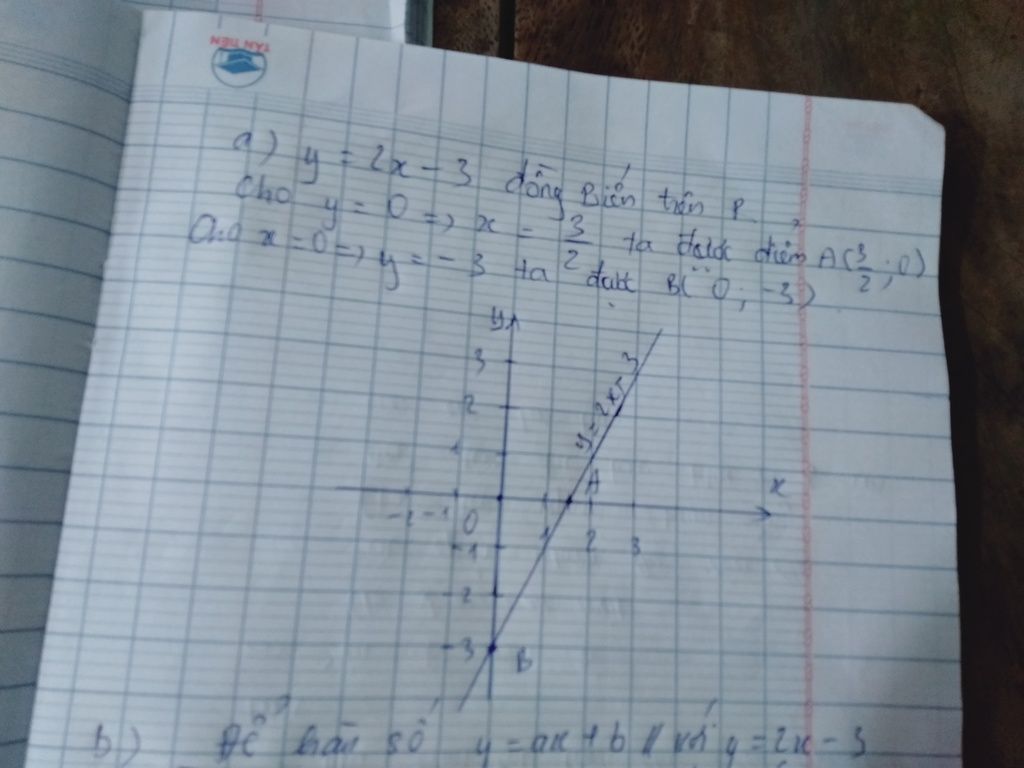 TÂN TIẾN
a) y = 2x - 3 đồng Biến trên R
Cho y = 0 => x = 3/2 ta được điểm A(3/2; 0)
Cho x = 0 => y = -3 ta được B(0; -3)
y
3
2
1
y = 2x - 3
A
x
-2 -1 0 1 2 3
-1
-2
-3 B
b) Để hàm số y = ax + b // với y = 2x - 3